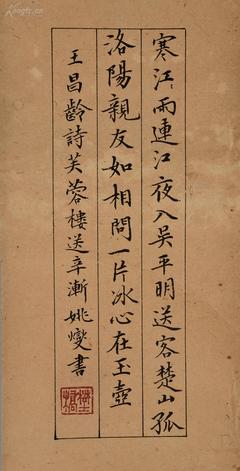 寒江雨連江夜入吳平明送客楚山孤
洛陽親友如相問一片冰心在玉壺
王昌齡詩芙蓉樓送辛漸 姚燮書